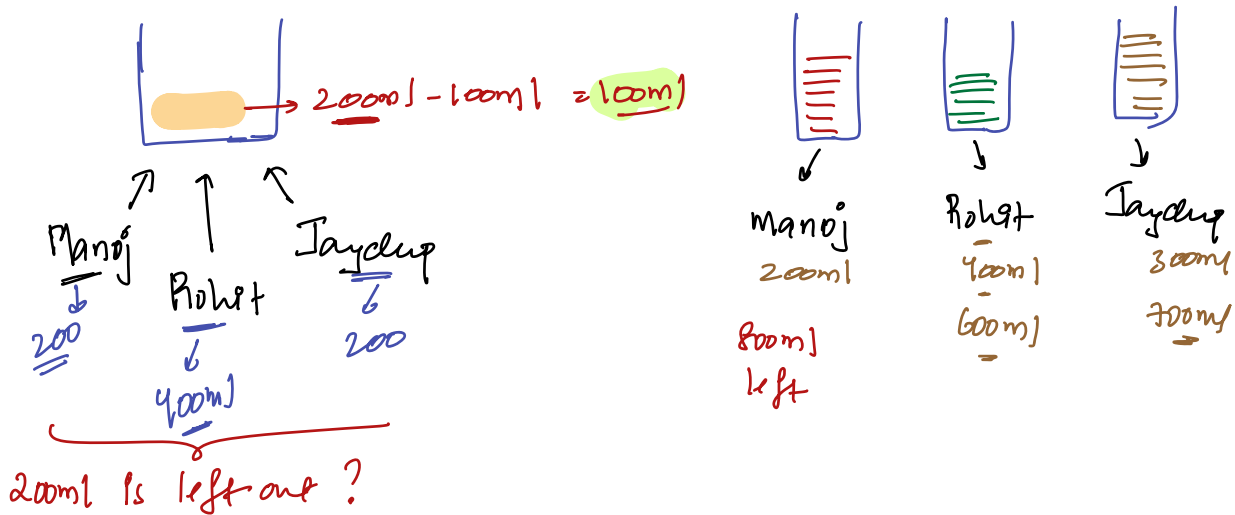 200ml - 100ml = 100ml
Manoj
Rohit
Jaydup
200
400ml
200
200ml is left out ?
Manoj
200ml
800ml
left
Rohit
400ml
600ml
Jaydup
300ml
700ml